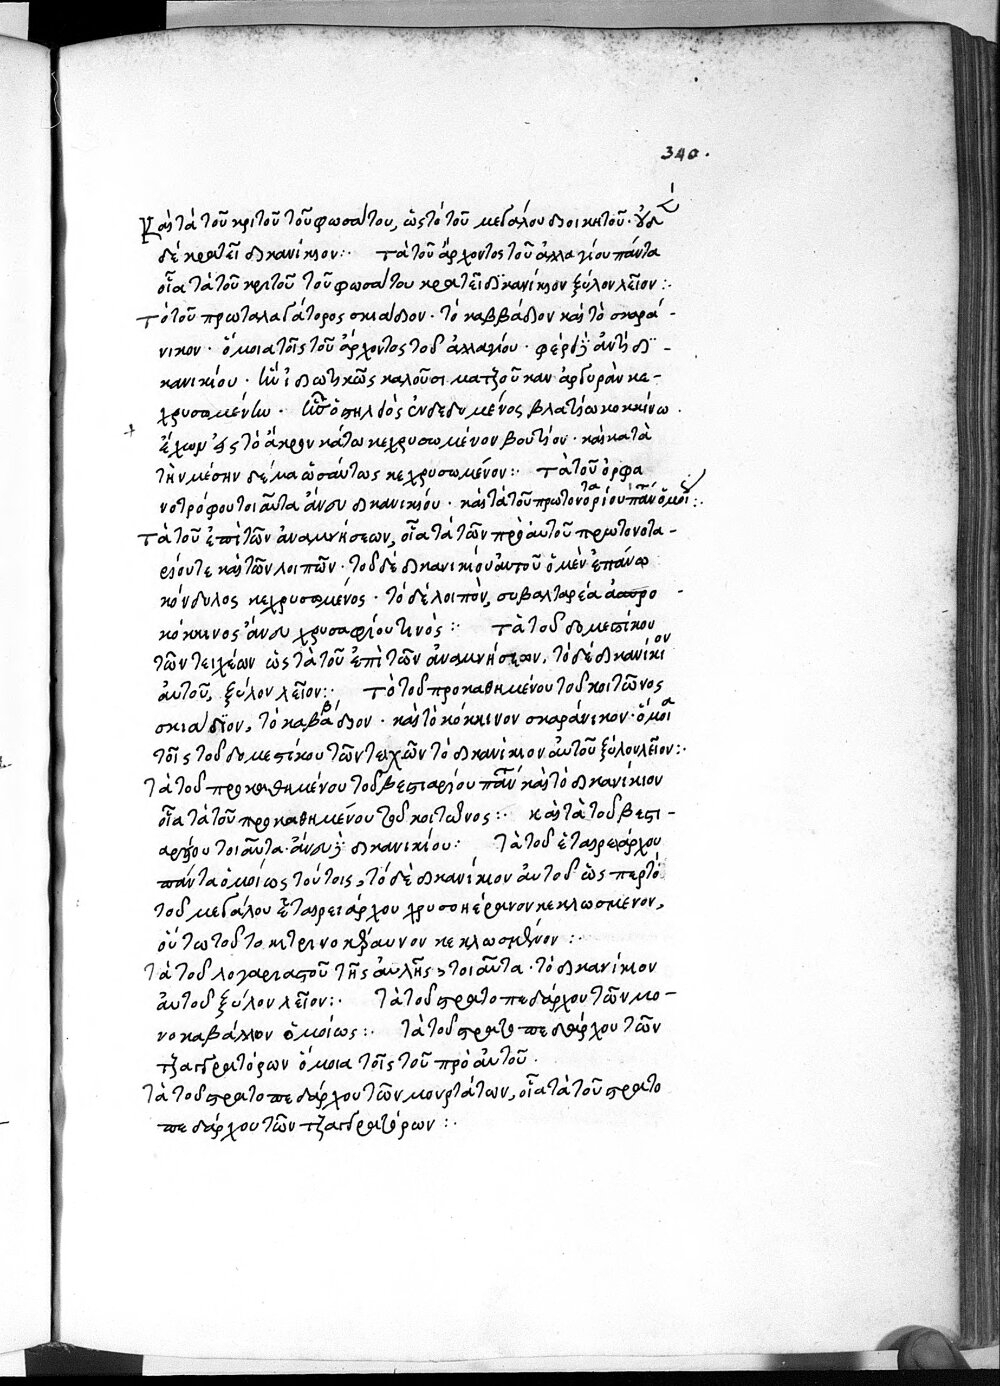 340.
Καὶ τὰ τοῦ κριτοῦ τοῦ φωσσάτου, ὡς τὸ τοῦ μεγάλου διοικητοῦ· οὐ
δὲ κρατεῖ δικανίκιον:· τὰ τοῦ ἄρχοντος τοῦ ἀλλαγίου πάντα
οἷα τὰ τοῦ κριτοῦ τοῦ φωσάτου κρατεῖ δικανίκιον ξύλον λεῖον:·
τὸ τοῦ πρωταλαγάτορος σκιάδιον· τὸ καββάδιον καὶ τὸ σκαρά-
νικον· ὅμοια τοῖς τοῦ ἄρχοντος τοῦ ἀλλαγίου· φέρει ἀντὶ δι-
κανικίου· ἣν ἰδιωτικῶς καλοῦσι ματζούκαν ἀργυρὰν κε-
χρυσωμένην· ἧς ὁ στηλδὸς ἐνδεδυμένος βλατίω κοκκίνω.
ἔχων εἰς τὸ ἄκρον κάτω κεχρυσωμένον βούτιον· καὶ κατὰ
τὴν μέσην δέμα ὡσαύτως κεχρυσωμένον:· τὰ τοῦ ὀρφα
νοτρόφου τοιαῦτα ἄνευ δικανικίου· καὶ τὰ τοῦ πρωτονοταρίου πάντα ὁμοῦ:·
τὰ τοῦ ἐπὶ τῶν ἀναμνήσεων, οἷα τὰ τῶν πρὸ αὐτοῦ πρωτονοτα-
ρίου τε καὶ τῶν λοιπῶν· τοῦ δὲ δικανικίου αὐτοῦ ὁ μὲν ἐπάνω
κόνδυλος κεχρυσωμένος· τὸ δὲ λοιπὸν, συβαλταρέα ἀσπρο-
κόκκινος ἄνευ χρυσαφίου τινός:· τὰ τοῦ δομεστίκου
τῶν τειχέων ὡς τὰ τοῦ ἐπὶ τῶν ἀναμνήσεων, τὸ δὲ δικανίκιον
αὐτοῦ, ξύλον λεῖον:· τὸ τοῦ προκαθημένου τοῦ κοιτῶνος
σκιάδιον, τὸ καββάδιον· καὶ τὸ κόκκινον σκαράνικον· ὅμοια
τοῖς τοῦ δομεστίκου τῶν τειχῶν τὸ δικανίκιον αὐτοῦ ξύλον λεῖον:·
τὰ τοῦ προκαθημένου τοῦ βεστιαρίου πάντα καὶ τὸ δικανίκιον
οἷα τὰ τοῦ προκαθημένου τοῦ κοιτῶνος:· καὶ τὰ τοῦ βεστι-
αρίου τοιαῦτα· ἄνευ δικανικίου: τὰ τοῦ ἑταιρειάρχου
πάντα ὁμοίως τούτοις, τὸ δὲ δικανίκιον αὐτοῦ ὥσπερ τὸ
τοῦ μεγάλου ἑταιρειάρχου χρυσοκέρινον κεκλωσμένον,
οὕτω τοῦτο κιτρινοκέραυνον κεκλωσμένον:·
τὰ τοῦ λογαριαστοῦ τῆς αὐλῆς, τοιαῦτα· τὸ δικανίκιον
αὐτοῦ ξύλον λεῖον:· τὰ τοῦ στρατοπεδάρχου τῶν μο-
νοκαβάλλων ὁμοίως:· τὰ τοῦ στρατοπεδάρχου τῶν
τζαγγρατόρων ὅμοια τοῖς τοῦ πρὸ αὐτοῦ.
τὰ τοῦ στρατοπεδάρχου τῶν μουρτάτων, οἷα τὰ τοῦ στρατο
πεδάρχου τῶν τζαγγρατόρων:·